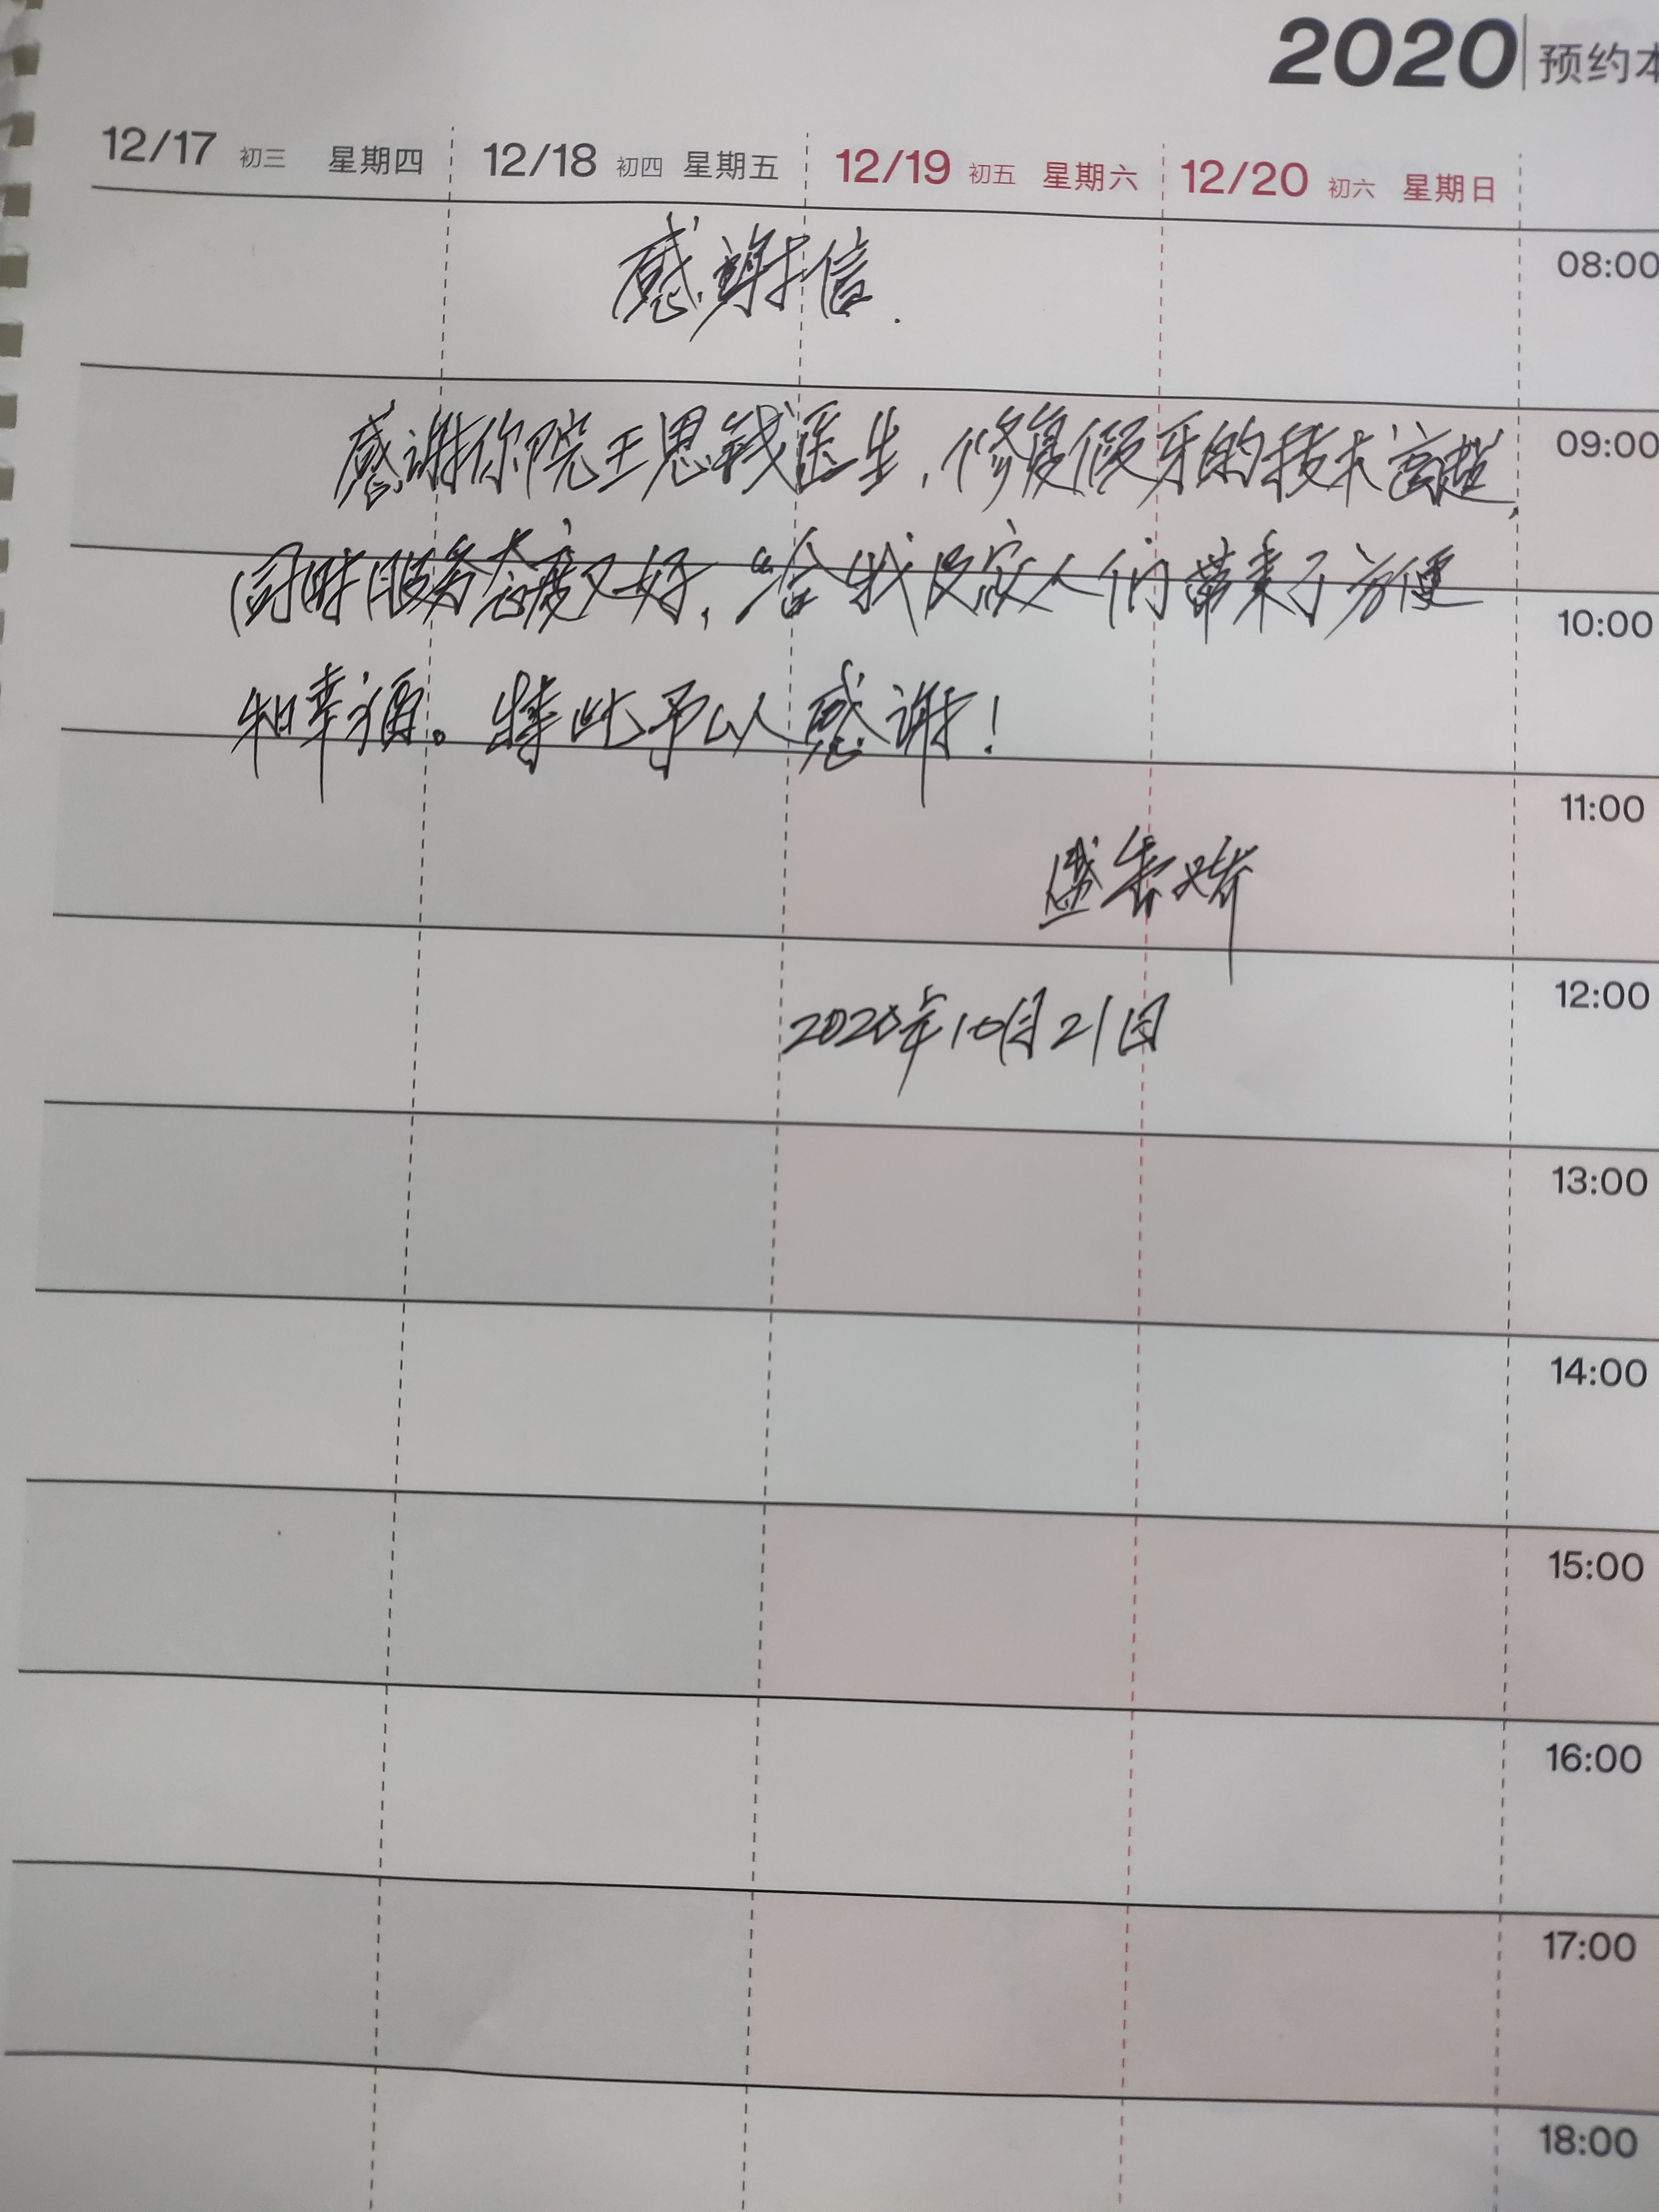 2020 预约本
12/17 初三 星期四 12/18 初四 星期五 12/19 初五 星期六 12/20 初六 星期日
08:00
感谢信.
09:00
感谢你院王思钱医生,修复假牙的技术高超,
同时服务态度又好,给我及家人们带来了方便
10:00
和幸福。特此予以感谢!
11:00
盛香娇
12:00
2020年10月21日
13:00
14:00
15:00
16:00
17:00
18:00